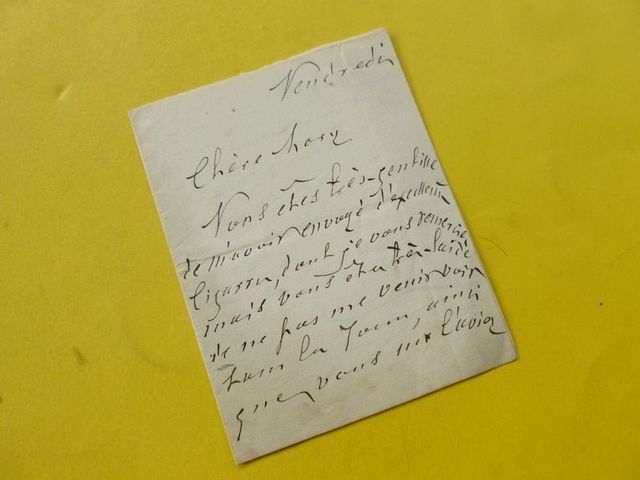 Vendredi
Chère Mary
Vous êtes très-gentille
de m'avoir envoyé d'excellents
cigares, dont je vous remercie
mais vous êtes très-laide
de ne pas me venir voir
tous les jours, ainsi
que vous me l'avie